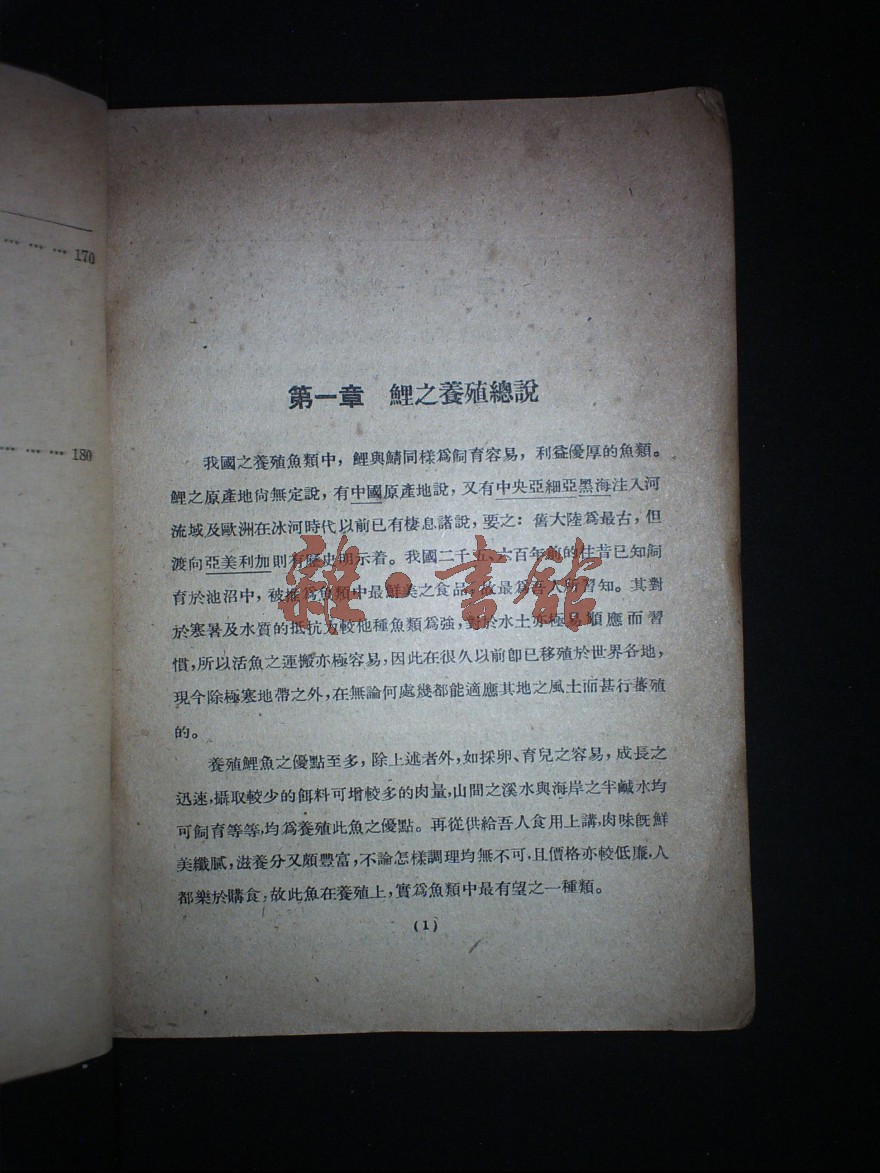 … … … 170
… … … 180
第一章　鯉之養殖總說
我國之養殖魚類中，鯉與鯖同樣爲飼育容易，利益優厚的魚類。
鯉之原產地尙無定說，有中國原產地說，又有中央亞細亞黑海注入河
流域及歐洲在冰河時代以前已有棲息諸說，要之：舊大陸爲最古，但
渡向亞美利加則有歷史明示着。我國二千五、六百年前的往昔已知飼
育於池沼中，被推爲魚類中最鮮美之食品，故最爲吾人所習知。其對
於寒暑及水質的抵抗力較他種魚類爲強，對於水土亦極易順應而習
慣，所以活魚之運搬亦極容易，因此在很久以前卽已移殖於世界各地，
現今除極寒地帶之外，在無論何處幾都能適應其地之風土而甚行蕃殖
的。
養殖鯉魚之優點至多，除上述者外，如採卵、育兒之容易，成長之
迅速，攝取較少的餌料可增較多的肉量，山間之溪水與海岸之半鹹水均
可飼育等等，均爲養殖此魚之優點。再從供給吾人食用上講，肉味旣鮮
美纖膩，滋養分又頗豐富，不論怎樣調理均無不可，且價格亦較低廉，人
都樂於購食，故此魚在養殖上，實爲魚類中最有望之一種類。
(1)
雜·書館